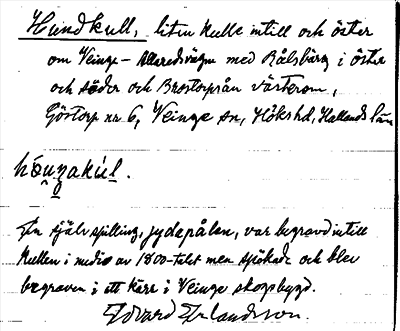 Hundkull, liten kulle intill och öster
om Veinge - Alleredsvägen med Bålsbärg i öster
och söder och Brostorpsån västerom,
Göstorp nr 6, Veinge sn, Höks hd, Hallands län
En självspilling, jydapålen, var begravd intill
kullen i medio av 1800-talet men spökade och blev
begraven i ett kärr i Veinge skogsbygd.
Edvard Erlandsson.